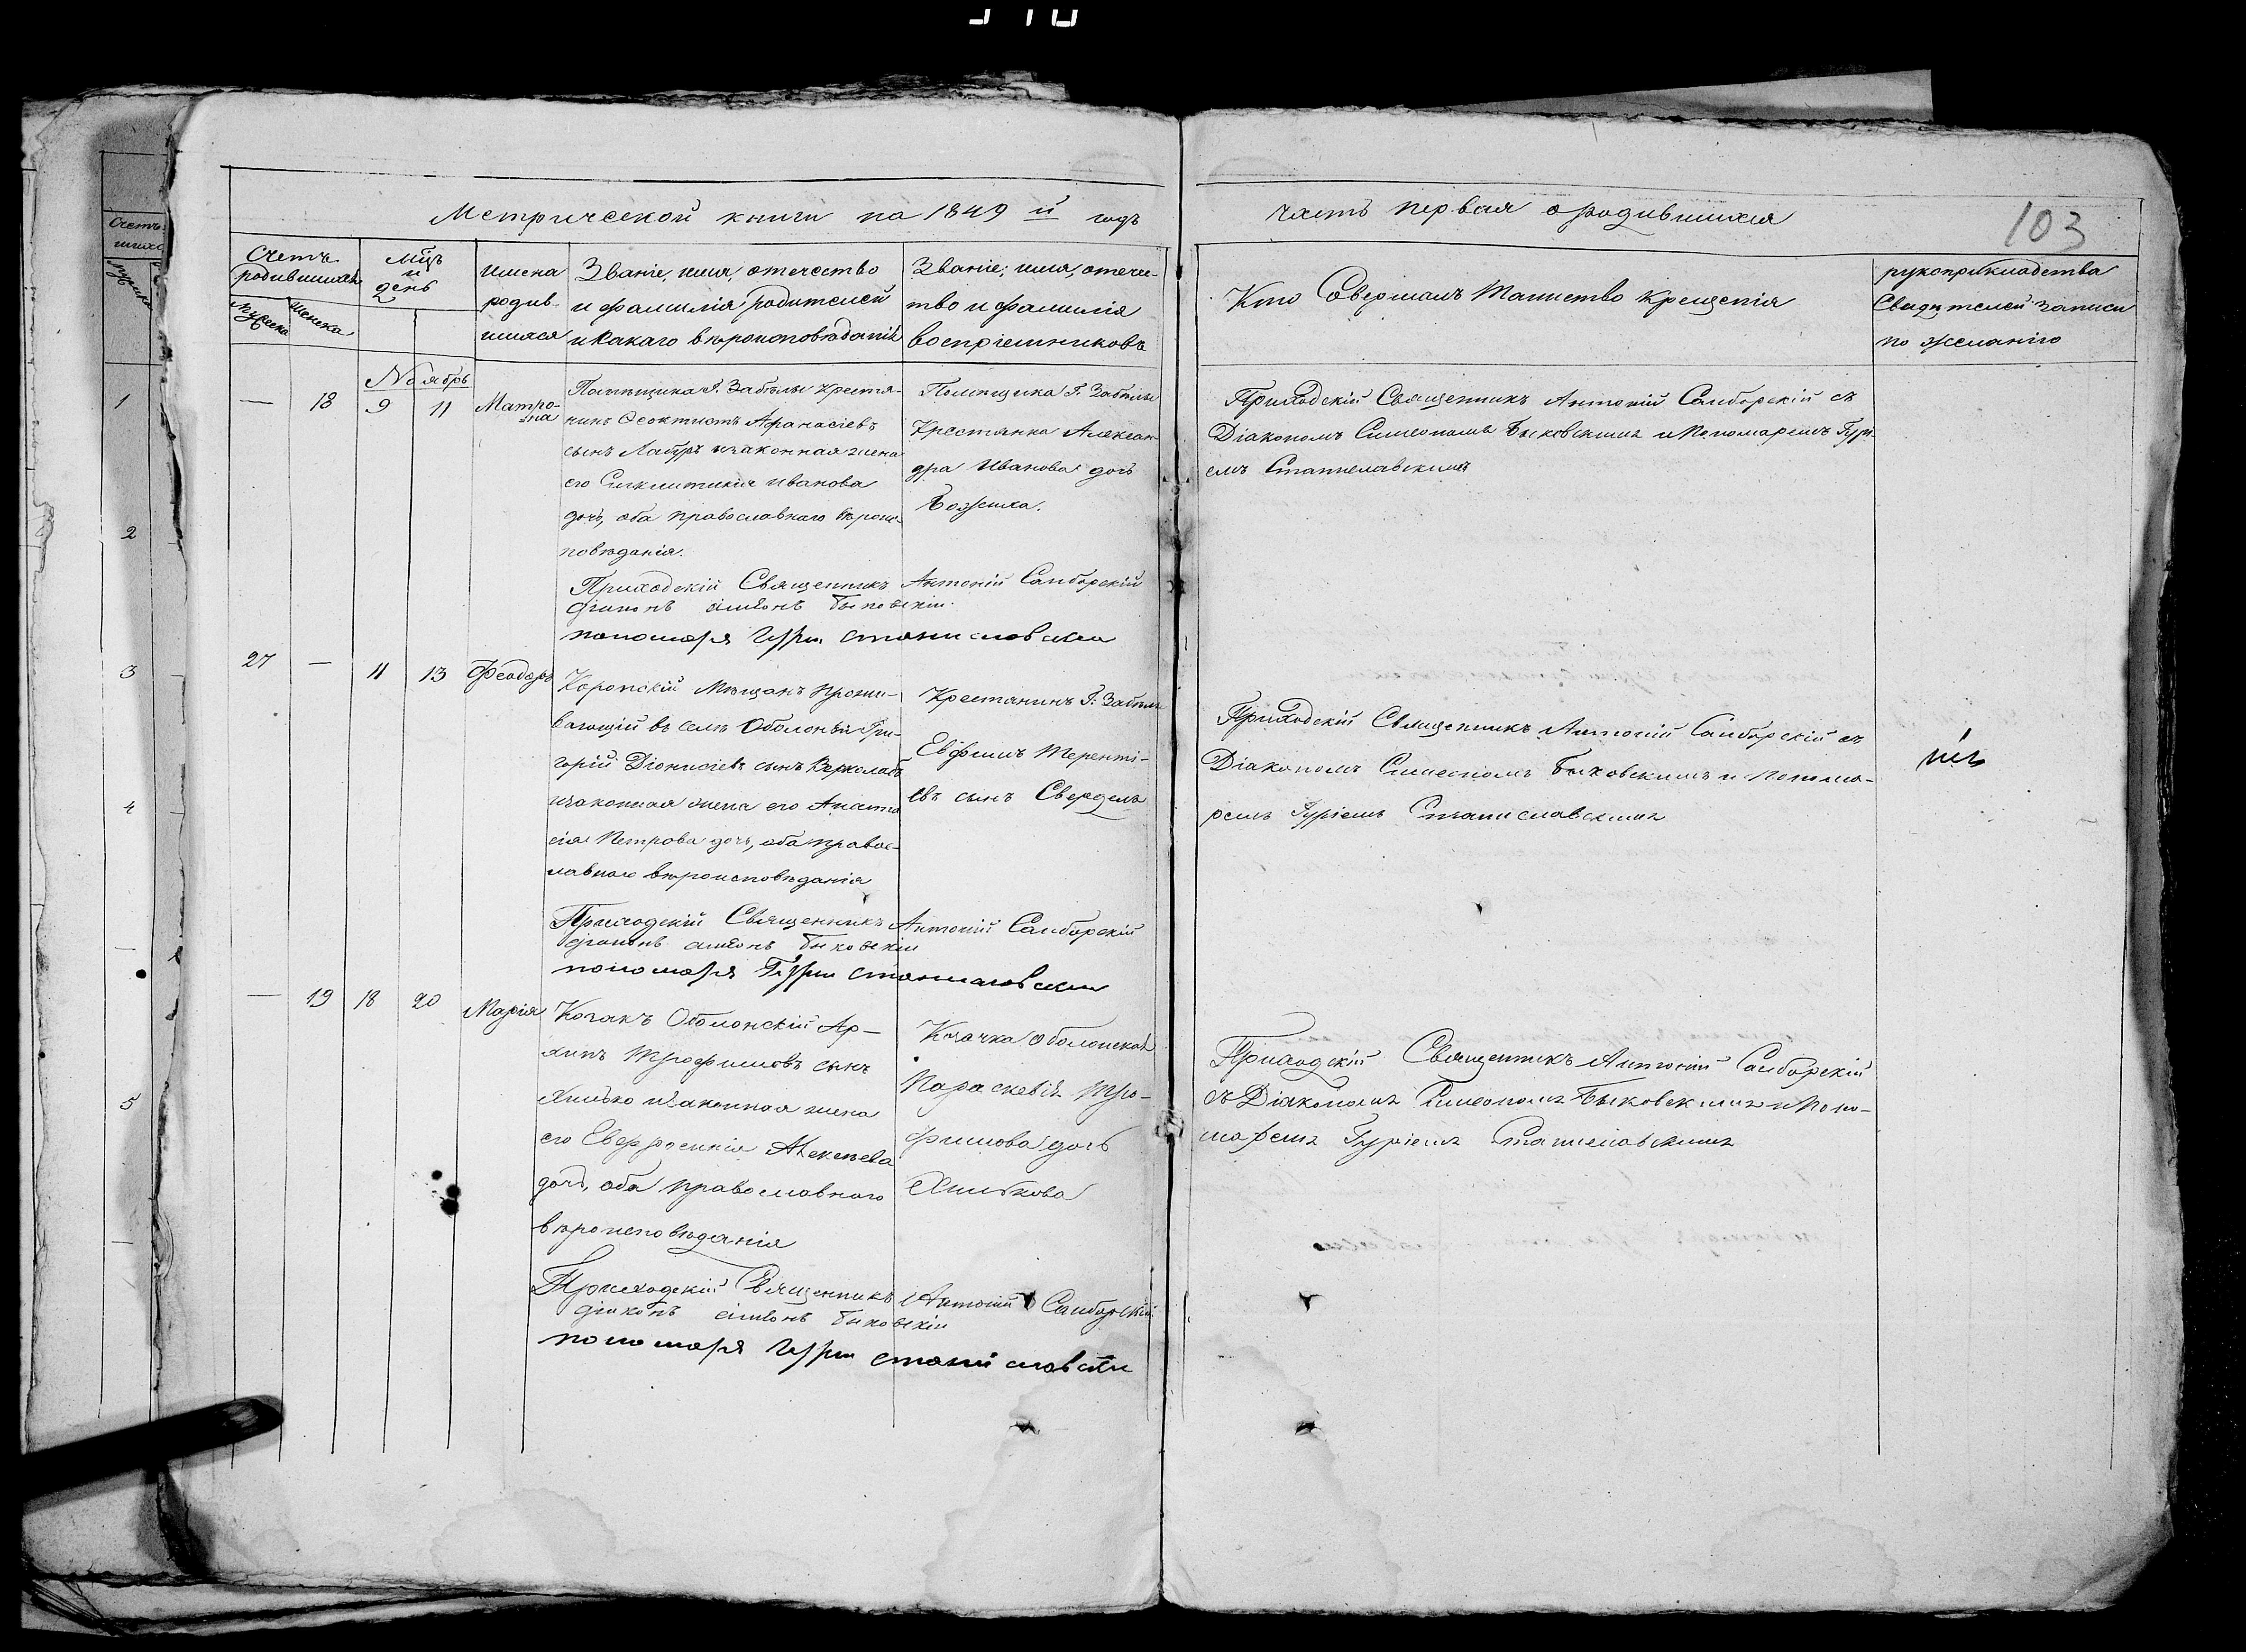 Метрической книги на 1849й годъ
часть первая о родившихся
103
Счетъ родившихся
Мужеска
Женска
мцъ
и
день
имена
родив-
шихся
Званіе, имя, отечество
и фамилія родителей
и какаго вѣроисповѣданія
Званіе, имя, отече-
тво и фамилія
воспріемниковъ
Кто Совершалъ Таинство Крещенія
рукоприкладства
Свидѣтелей записи
по желанію
Ноябрь
— 18 9 11 Матро-
на
Помѣщика Г. Забѣлы Крестя-
нинъ Ѳеоктистъ Афанасіевъ
сынъ и законная жена
его Синклитикія Иванова
дочь, оба православнаго вѣроис-
повѣданія.
Помѣщика Г. Забѣлы
Крестянка Алексан-
дра Иванова дочь
Божика.
Приходскій Священникъ Антоній Самборскій съ
Діакономъ Симеономъ Быковскимъ и Пономаремъ Гурі-
емъ Станиславскимъ
Приходскій Священникъ Антоній Самборскій
діаконъ симеонъ быковскіи
пономаря Гури станиславски
27 — 11 13 Феодоръ
Коропскій Мѣщанъ прожи-
вающій въ селѣ Оболоньи Гри-
горій Діонисіевъ сынъ
и законная жена его Анаста
сія Петрова дочь, оба правос-
лавнаго вѣроисповѣданія
Крестянинъ Г. Забѣлы
Евфимъ Теренті-
евъ сынъ Свердель
Приходскій Священникъ Антоній Самборскій съ
Діакономъ Симеономъ Быковскимъ и Понома-
ремъ Гуріемъ Станиславскимъ
Приходскій Священникъ Антоній Самборскій
діаконъ симеонъ быковскіи
пономаря Гури станиславски
— 19 18 20 Марія
Козакъ Оболонскій Ар-
хипъ Трофимовъ сынъ
Хмѣлко и законная жена
его Евфросинія Алексѣева
дочь, оба православнаго
вѣроисповѣданія
Козачка Оболонская
Параскевія Тро-
фимова дочь
Приходскій Священникъ Антоній Самборскій
съ Діакономъ Симеономъ Быковскимъ и Поно-
маремъ Гуріемъ Станиславскимъ
Приходскій Священникъ Антоній Самборскій
діаконъ симеонъ быковскіи
пономаря Гури станиславски
1
2
3
4
5